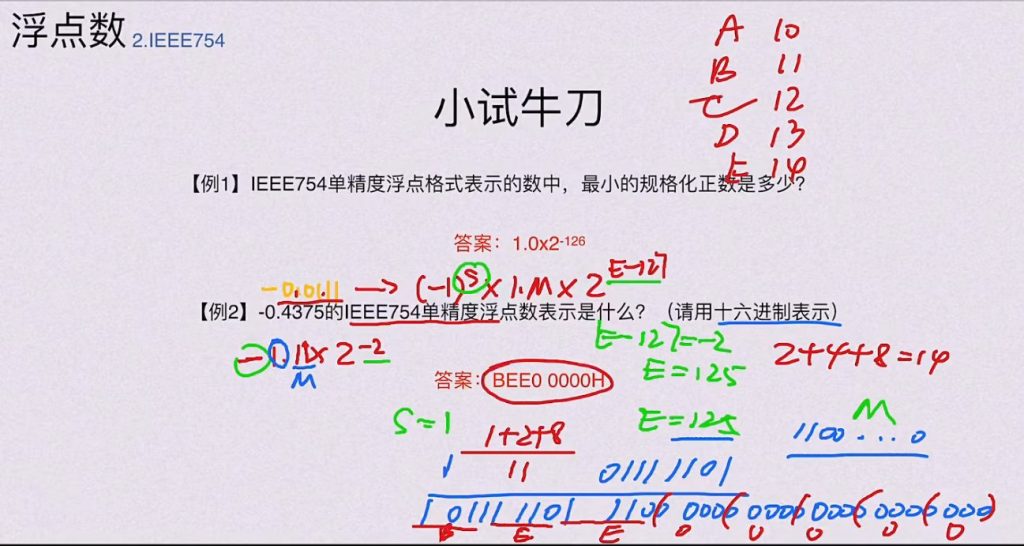 浮点数 2.IEEE754
A 10
B 11
C 12
D 13
E 14
小试牛刀
【例1】IEEE754单精度浮点格式表示的数中，最小的规格化正数是多少？
答案：1.0x2-126
-0.0111 → (-1)^S × 1.M × 2^E-127
【例2】-0.4375的IEEE754单精度浮点数表示是什么？（请用十六进制表示）
-1.11×2^-2
M
E-127=-2
E=125
2+4+8=14
答案：BEE0 0000H
S=1
E=125
M
1+2+8
11
0111 1101
1100...0
1 0111 1101 1100 0000 0000 0000 0000 000
B E E 0 0 0 0 0